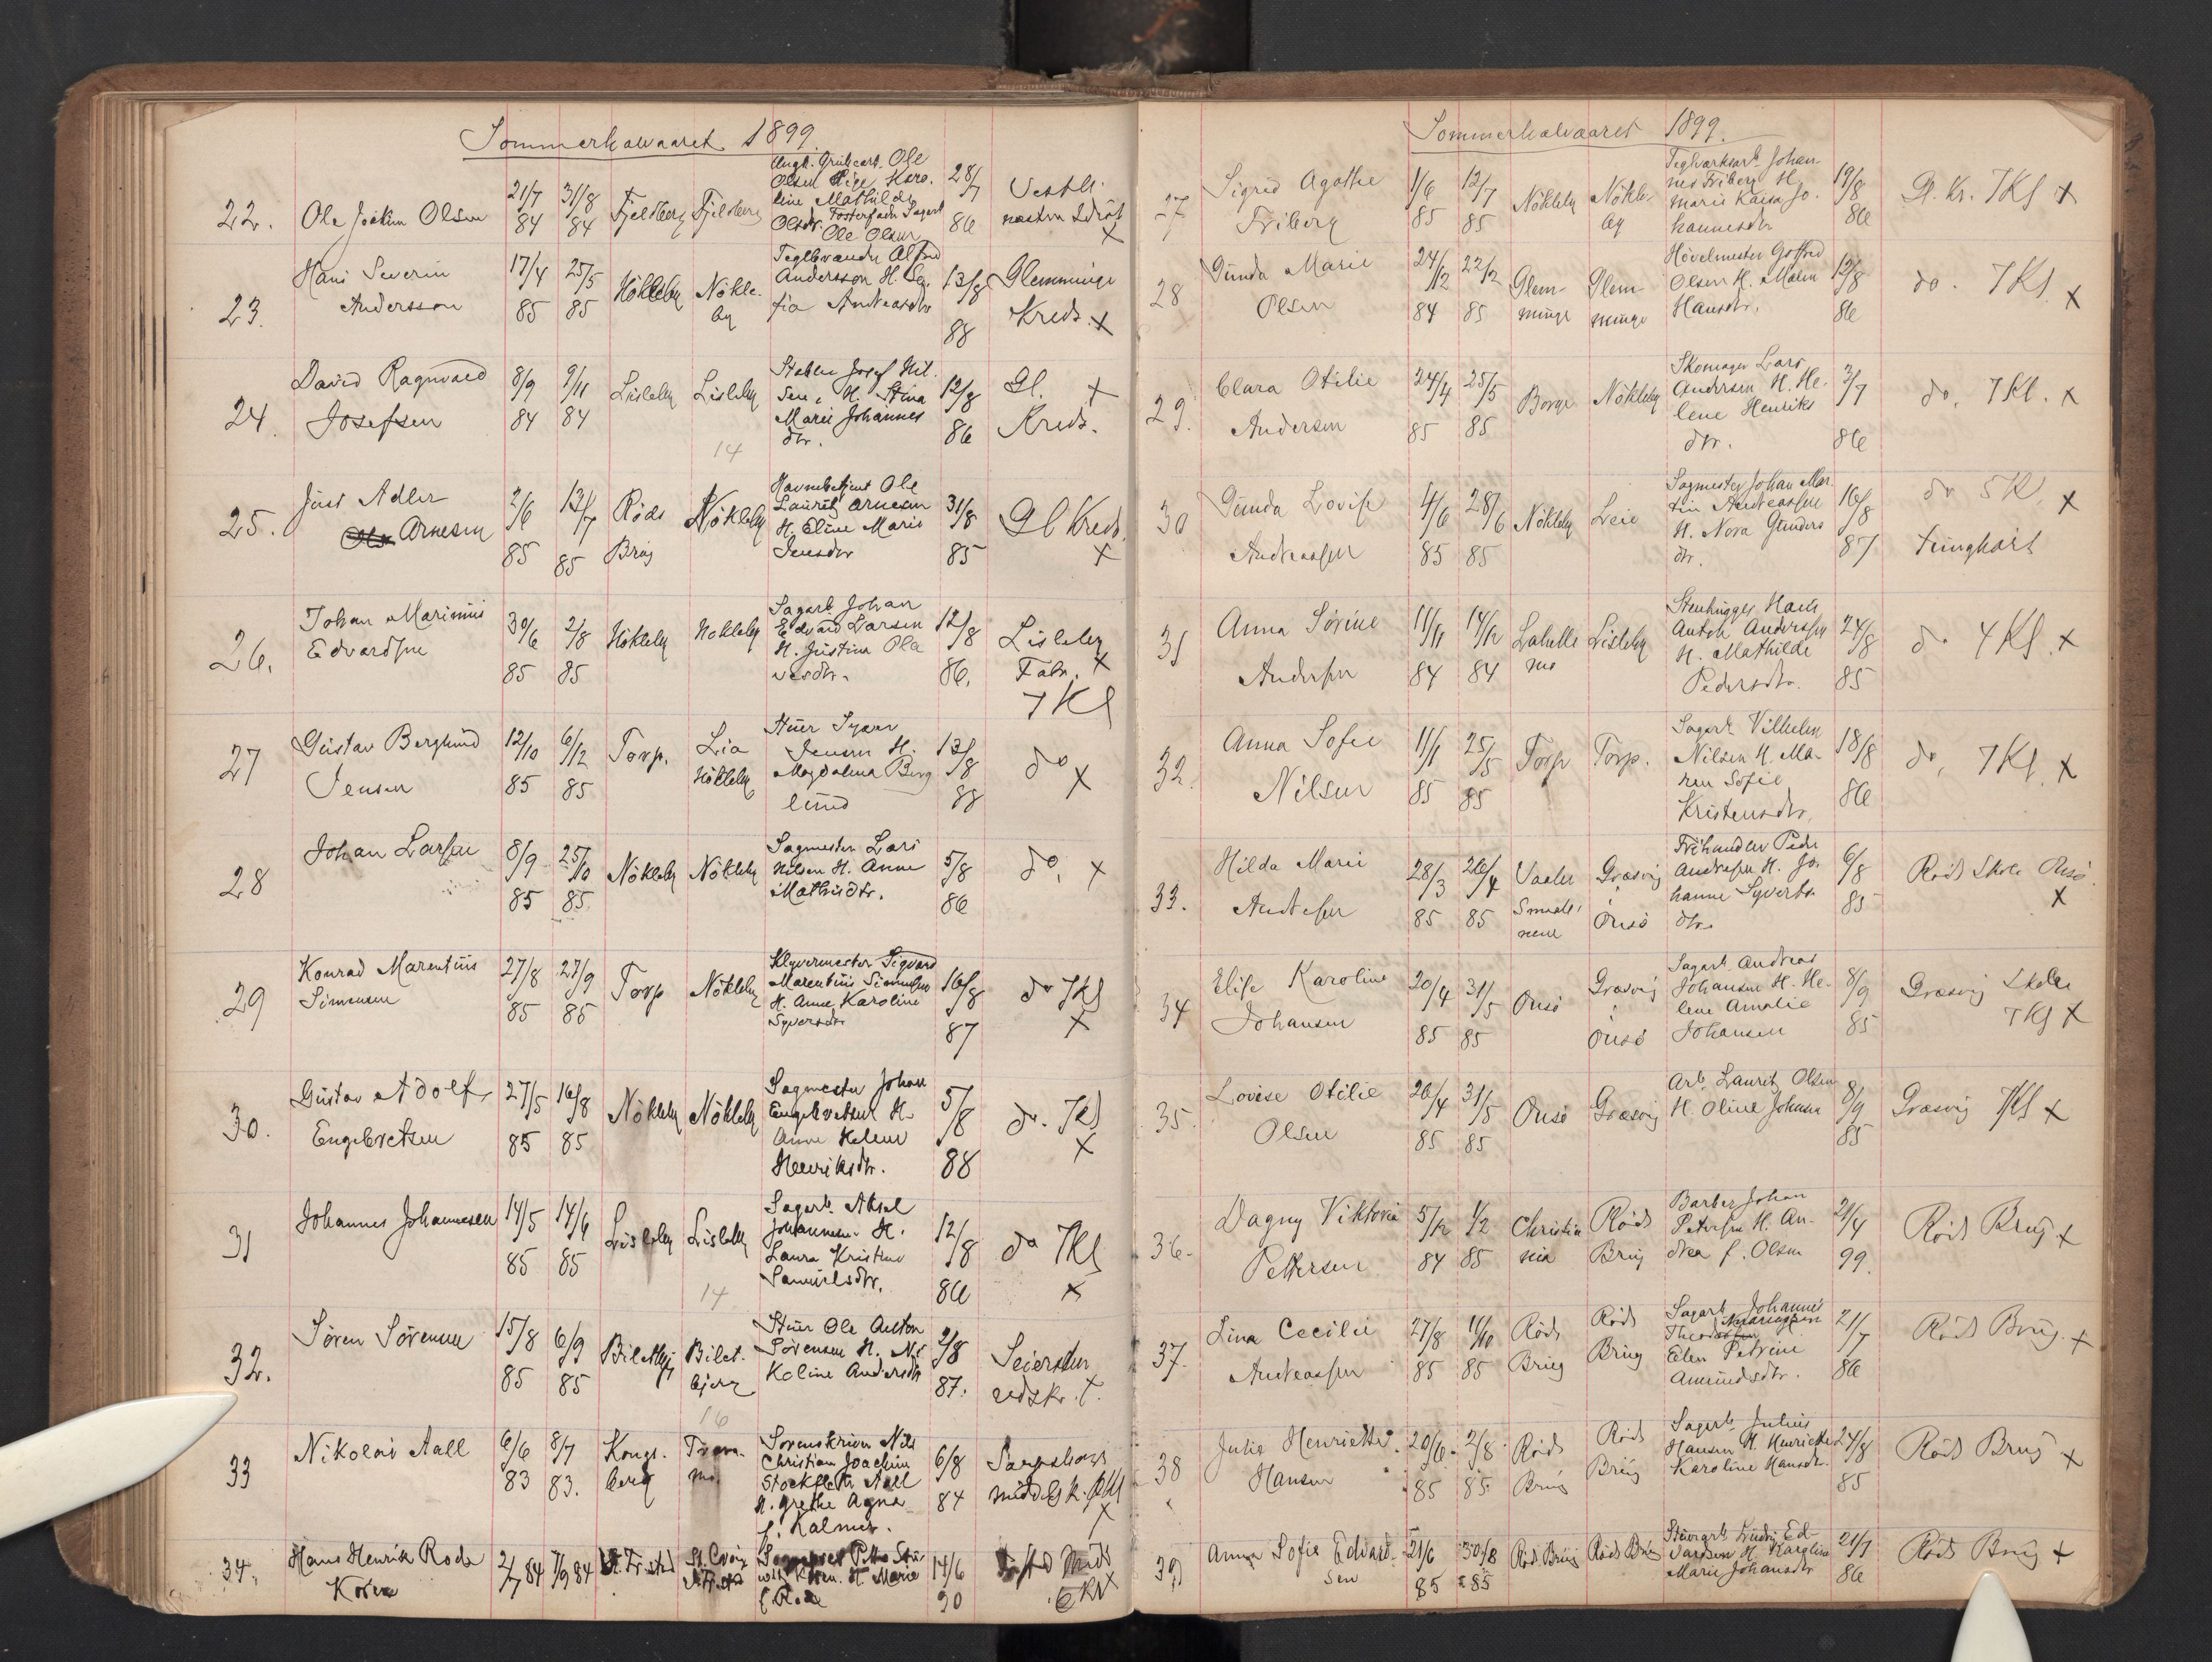 Sommerhalvaaret 1899.
22. Ole Joakim Olsen 21/7 84 31/8 84 Fjeldberg Fjeldberg
Olsen Karo-
line Mathilde
Olsdtr. Fosterfader Sagarb.
Ole Olsen
28/7 86 Vestli
næsten Idiot x
23. Hans Severin
Andersson
17/4 85 25/5 85 Nökleby Nökle-
by
Andersson H. So-
fia Andreasdtr
13/8 88 Glemminge
Kreds. x
24. David Ragnvald
Josefsen
8/9 84 9/11 84 Lisleby Lisleby
14
Stabler Josef Nil-
sen, H. Stina
Marie Johannes
dtr.
12/8 86 Gl. x
Kreds.
25. Just Adler
Arnesen
2/6 85 13/7 85 Röds
Brug
Nökleby
Havnebetjent Ole
Lauritz Arnesen
H. Eline Marie
Jensdtr
31/8 85 Gl Kreds.
x
26. Johan Marinius
Edvardsen
30/6 85 2/8 85 Nökleby Nökleby
Sagarb. Johan
Edvard Larsen
H. Justine Ola
vesdtr.
12/8 86. Lisleby
Fabr. x
7 Kl
27 Gustav Berglund
Jensen
12/10 85 6/12 85 Torp. Lia
Nökleby
Jensen H.
Magdalena Berg
lund
13/8 88 do x
28 Johan Larsen
8/9 85 25/10 85. Nökleby Nökleby
Sagmester Lars
Nilsen H. Anne
Mathisdtr.
5/8 86 do. x
29 Konrad Marentius
Simensen
27/8 85 27/9 85 Torp Nökleby
Klyvermester Sigvard
Marentius Simensen
H. Anne Karoline
Syversdtr
16/8 87 do 7Kl
x
30. Gustav Adolf
Engebretsen
27/5 85 16/8 85 Nökleby Nökleby
Sagmester Johan
Engebretsen H.
Anne Helene
Henriksdtr.
5/8 88 do. 7Kl
x
31 Johannes Johannesen
14/5 85 14/6 85 Lisleby Lisleby
14
Sagarb. Aksel
Johannesen H.
Laura Kristine
Samuelsdtr.
12/8 86 do 7Kl
x
32. Sören Sörensen
15/8 85 6/9 85 Biletbjerg Bilet-
bjerg
16
Stuer Ole Anton
Sörensen H. Ni
koline Andersdtr
2/8 87.
33 Nikolai Aall
6/6 83 8/7 83. Kongs-
berg
Sorenskriver Nils
Christian Joachim
Stockfleth Aall
H. Grethe Agna
f. Kalmer.
6/8 84 Sarpsborgs
x
34. Hans Henrik Rode
Koren
2/7 84 7/9 84
H. Marie
f. Rode
14/6 90
6 Kl x
Sommerhalvaaret 1899.
27 Sigrid Agathe
Friberg
1/6 85 12/7 85 Nökleby Nökle-
by
Teglværksarb. Johan-
nes Friberg H.
Marie Kaisa Jo-
hannesdtr
19/8 86 Gl. Kr. 7Kl x
28 Gunda Marie
Olsen
24/12 84 22/2 85 Glem-
minge
Glem
minge
Hövelmester Gotfred
Olsen H. Maren
Hansdtr.
12/8 86 do. 7Kl. x
29. Clara Otilie
Andersen
24/4 85 25/5 85 Borge Nökleby
Skomager Lars
Andersen H. He-
lene Henriks
dtr.
3/7 86 do. 7Kl. x
30 Gunda Lovise
Andreassen
4/6 85 28/6 85 Nökleby Leie
Sagmester Johan Mar
tin Andreassen
H. Nora Gunders
dtr.
16/8 87 do 5Kl x
tunghört
31 Anna Sörine
Andersen
11/11 84 14/12 84 Lisleby
Stenhugger Hans
Anton Andersen
H. Mathilde
Pedersdtr.
24/8 85 do 4Kl. x
32. Anna Sofie
Nilsen
11/1 85 25/5 85 Torp Torp.
Sagarb. Vilhelm
Nilsen H. Ma-
ren Sofie
Kristensdtr.
18/8 86 do. 7Kl. x
33. Hilda Marie
Andresen
28/3 85 26/4 85 Vaaler
Smaale-
nene
Græsvig
i
Onsö
Peder
Andresen H. Jo-
hanne Syverts
dtr.
6/8 85 Röds Skole Onsö.
x
34 Elise Karoline
Johansen
20/4 85 31/5 85 Onsö Græsvig
i
Onsö
Sagarb. Andreas
Johansen H. He-
lene Amalie
Johansen
8/9 85 Græsvig Skole
7Kl x
35. Lovise Otilie
Olsen
26/4 85 31/5 85 Onsö Græsvig
Arb. Lauritz Olsen
H. Oline Johnsen
8/9 85 Græsvig 7Kl x
36. Dagny Viktoria
Pettersen
5/12 84 1/2 85 Christia
nia
Röds
Brug
Barber Johan
Petersen H. An-
drea f. Olsen
21/4 99. Röds Brug x
37. Lina Cecilie
Andreassen
27/8 85 11/10 85 Röds
Brug
Röds
Brug
Sagarb. Johannes
Andreassen
Elen Petrine
Amundsdtr.
21/7 86 Röds Brug. x
38 Julie Henriette
Hansen
20/6 85 2/8 85 Röds
Brug
Röds
Brug
Sagarb. Julius
Hansen H. Henriette
Karoline Hansdtr.
24/8 85 Röds Brug x
39 Anna Sofie Edvard-
sen
21/6 85 30/8 85 Röds Brug Röds Brug
Ed-
vardsen H. Karoline
Marie Johansdtr
21/7 86 Röds Brug x